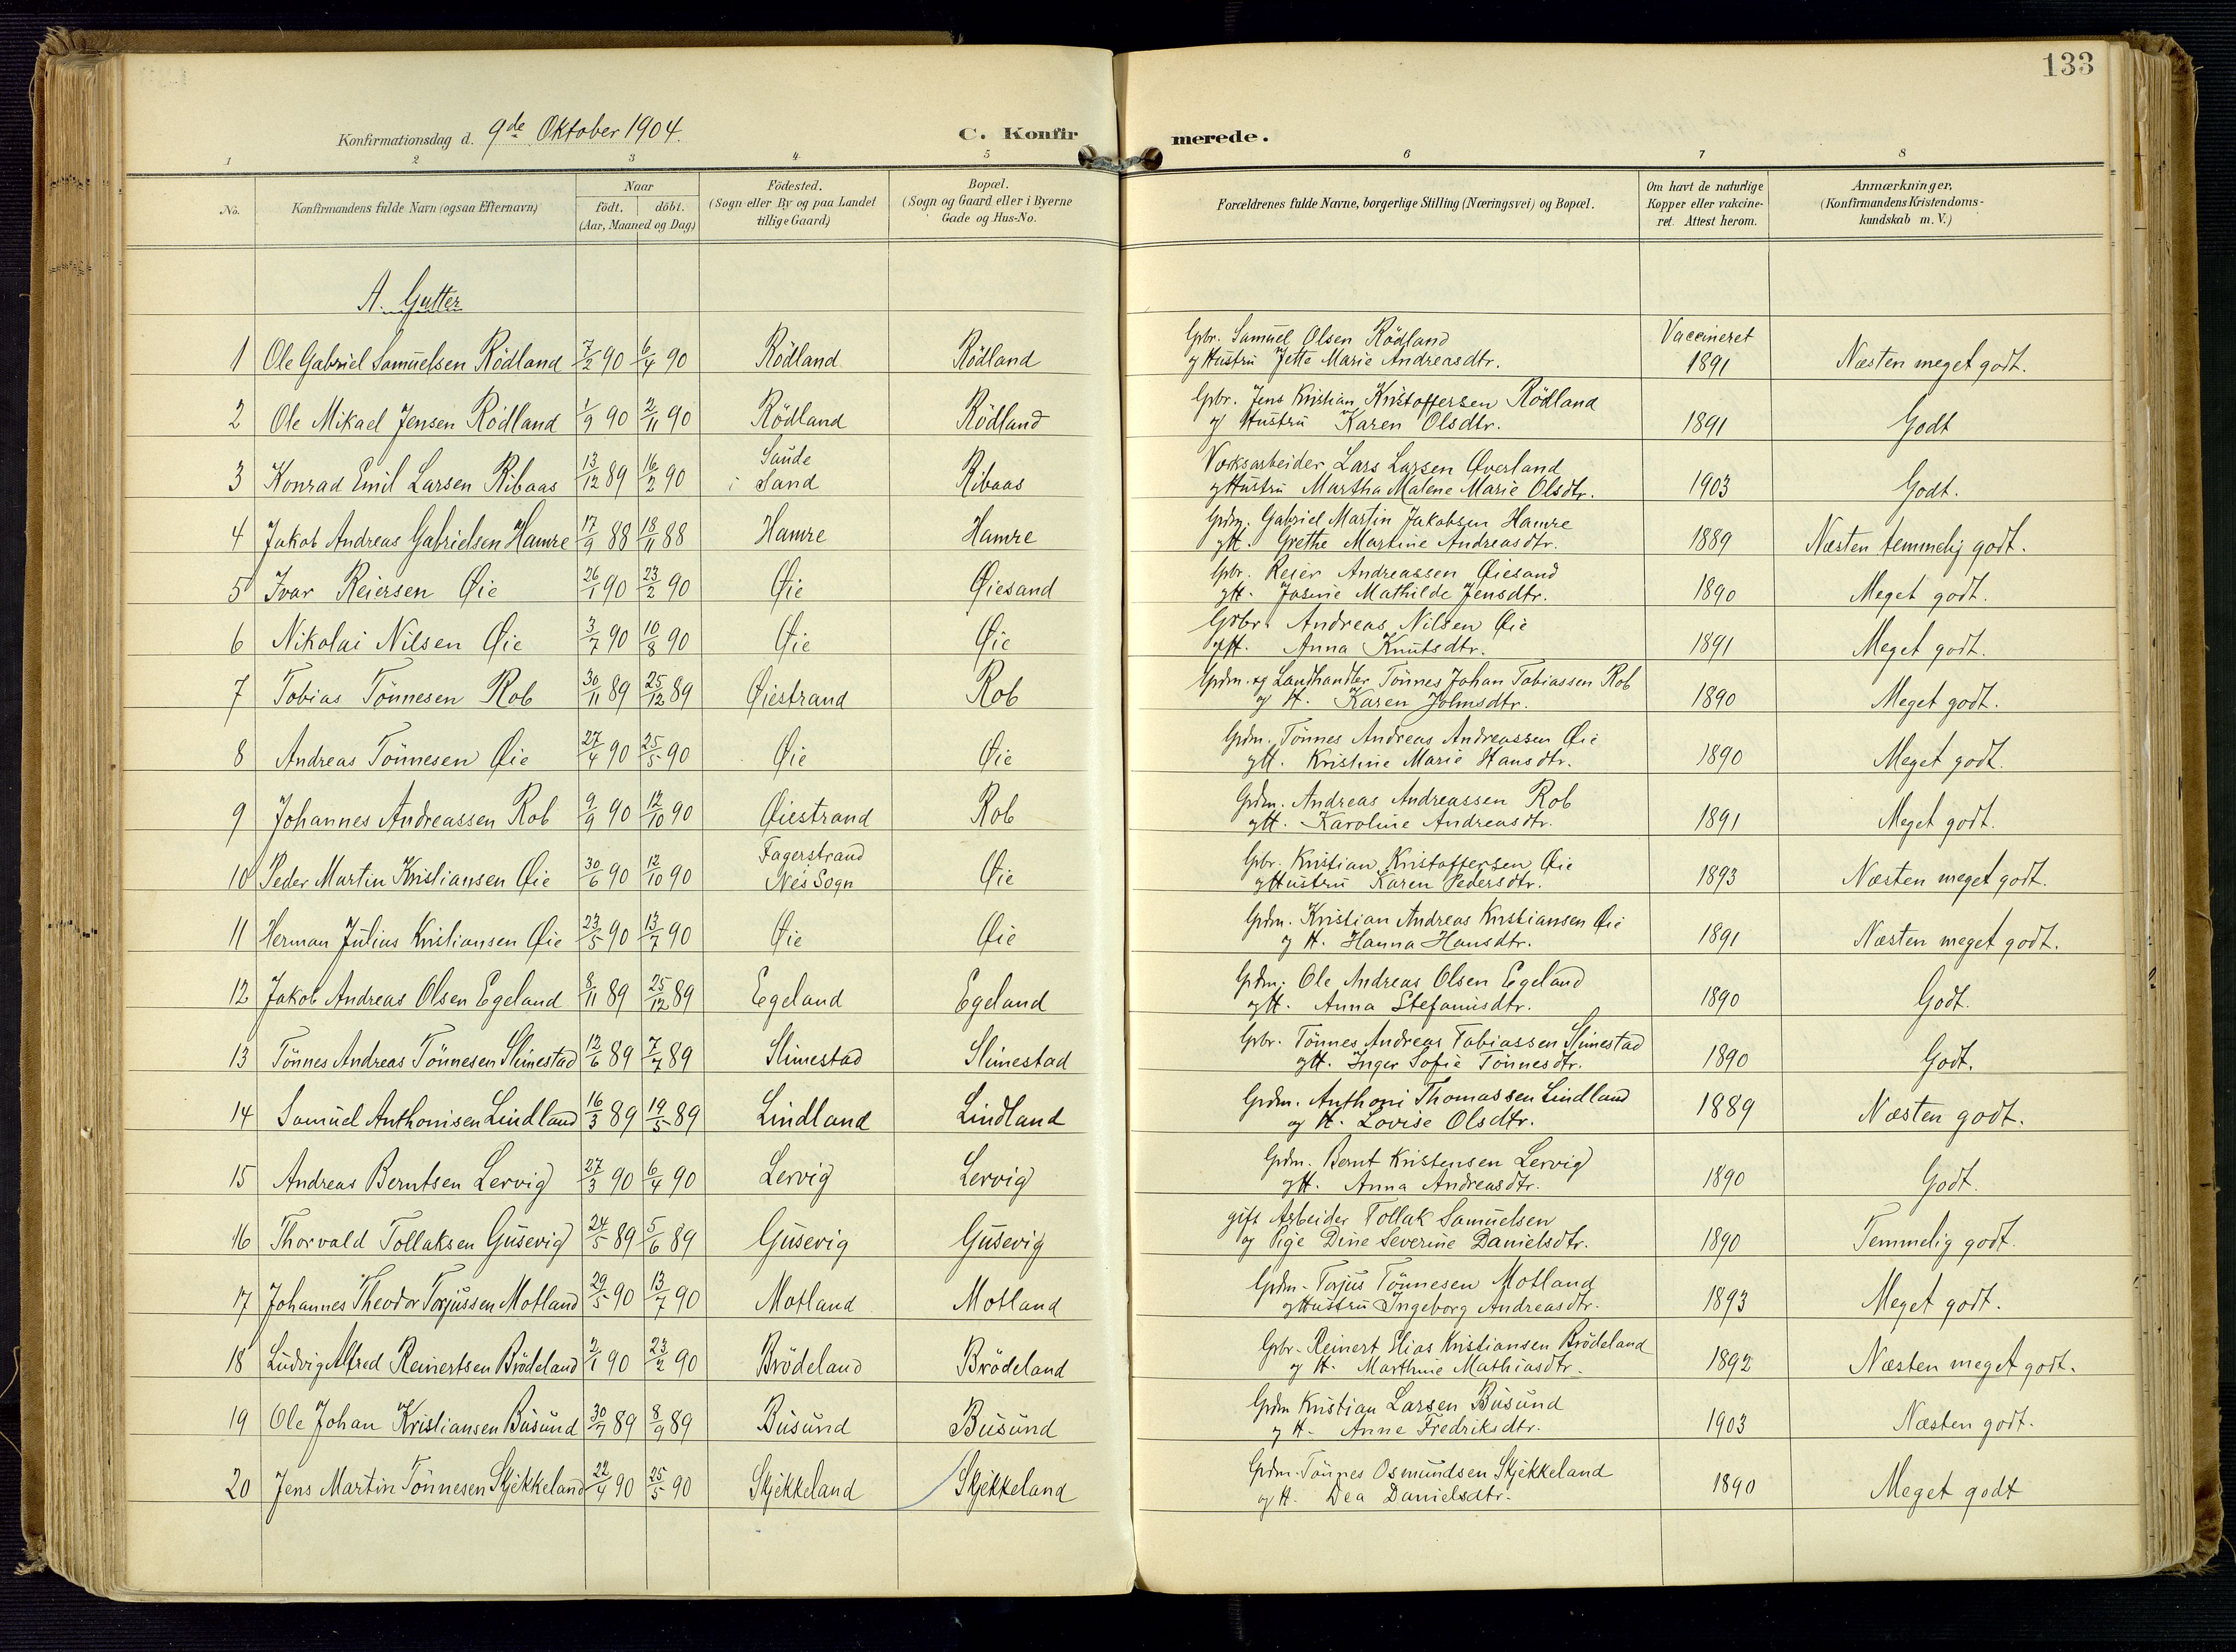 133
Konfirmationsdag d. 9de Oktober 1904.
C. Konfirmerede.
1 2 3 4 5 6 7 8
No. Konfirmandens fulde Navn (ogsaa Efternavn) Naar födt. döbt. (Aar, Maaned og Dag) Födested. (Sogn eller By og paa Landet tillige Gaard) Bopæl. (Sogn og Gaard eller i Byerne Gade og Hus-No. Forældrenes fulde Navne, borgerlige Stilling (Næringsvei) og Bopæl. Om havt de naturlige Kopper eller vakcineret. Attest herom. Anmærkninger, (Konfirmandens Kristendomskundskab m. V.)
A. Gutter
1 Ole Gabriel Samuelsen Rödland 7/2 90 6/4 90 Rödland Rödland Gbr. Samuel Olsen Rödland og Hustru Jette Marie Andreasdtr. Vaccineret 1891 Næsten meget godt.
2 Ole Mikael Jensen Rödland 1/9 90 2/11 90 Rödland Rödland Gbr. Jens Kristian Kristoffersen Rödland og Hustru Karen Olsdtr. 1891 Godt
3 Konrad Emil Larsen Ribaas 13/12 89 16/2 90 Saude i Sand Ribaas Lars Larsen Øverland og Hustru Martha Malene Marie Olsdtr. 1903 Godt.
4 Jakob Andreas Gabrielsen Hamre 17/9 88 18/11 88 Hamre Hamre Grdm. Gabriel Martin Jakobsen Hamre og H. Grethe Martine Andreasdtr. 1889 Næsten temmelig godt.
5 Ivar Reiersen Øie 26/1 90 23/2 90 Øie Øiesand Gbr. Reier Andreassen Øiesand og H. Jasine Mathilde Jensdtr. 1890 Meget godt.
6 Nikolai Nilsen Øie 3/7 90 10/8 90 Øie Øie Gbr. Andreas Nilsen Øie og H. Anna Knutsdtr. 1891 Meget godt.
7 Tobias Tönnesen Rob 30/11 89 25/12 89 Øiestrand Rob Grdm. og Landhandler Tönnes Johan Tobiassen Rob og H. Karen Johnsdtr. 1890 Meget godt.
8 Andreas Tönnesen Øie 27/4 90 25/5 90 Øie Øie Grdm. Tönnes Andreas Andreassen Øie og H. Kristine Marie Hansdtr. 1890 Meget godt.
9 Johannes Andreassen Rob 9/9 90 12/10 90 Øiestrand Rob Grdm. Andreas Andreassen Rob og H. Karoline Andreasdtr. 1891 Meget godt.
10 Peder Martin Kristiansen Øie 30/6 90 12/10 90 Fagerstrand Nes Sogn Øie Gbr. Kristian Kristoffersen Øie og Hustru Karen Pedersdtr. 1893 Næsten meget godt.
11 Herman Julius Kristiansen Øie 23/5 90 13/7 90 Øie Øie Grdm. Kristian Andreas Kristiansen Øie og H. Hanna Hansdtr. 1891 Næsten meget godt.
12 Jakob Andreas Olsen Egeland 8/11 89 25/12 89 Egeland Egeland Grdm. Ole Andreas Olsen Egeland og H. Anna Stefanusdtr. 1890 Godt.
13 Tönnes Andreas Tönnesen Slimestad 12/6 89 7/7 89 Slimestad Slimestad Gbr. Tönnes Andreas Tobiassen Slimestad og H. Inger Sofie Tönnesdtr. 1890 Godt.
14 Samuel Anthonisen Lindland 16/3 89 19/5 89 Lindland Lindland Grdm. Anthoni Thomassen Lindland og H. Lovise Olsdtr. 1889 Næsten godt.
15 Andreas Berntsen Lervig 27/3 90 6/4 90 Lervig Lervig Grdm. Bernt Kristensen Lervig og H. Anna Andreasdtr. 1890 Godt.
16 Thorvald Tollaksen Gusevig 24/5 89 5/6 89 Gusevig Gusevig gift Arbeider Tollak Samuelsen og Pige Dine Severine Danielsdtr. 1890 Temmelig godt.
17 Johannes Theodor Torjussen Motland 29/5 90 13/7 90 Motland Motland Grdm. Torjus Tönnesen Motland og Hustru Ingeborg Andreasdtr. 1893 Meget godt.
18 Ludvig Alfred Reinertsen Brödeland 2/1 90 23/2 90 Brödeland Brödeland Gbr. Reinert Elias Kristiansen Brödeland og H. Marthine Mathiasdtr. 1892 Næsten meget godt.
19 Ole Johan Kristiansen Busund 30/7 89 8/9 89 Busund Busund Grdm Kristian Larsen Busund og H. Anne Fredriksdtr. 1903 Næsten godt.
20 Jens Martin Tönnesen Skjekkeland 22/4 90 25/5 90 Skjekkeland Skjekkeland Grdm. Tönnes Osmundsen Skjekkeland og H. Dea Danielsdtr. 1890 Meget godt